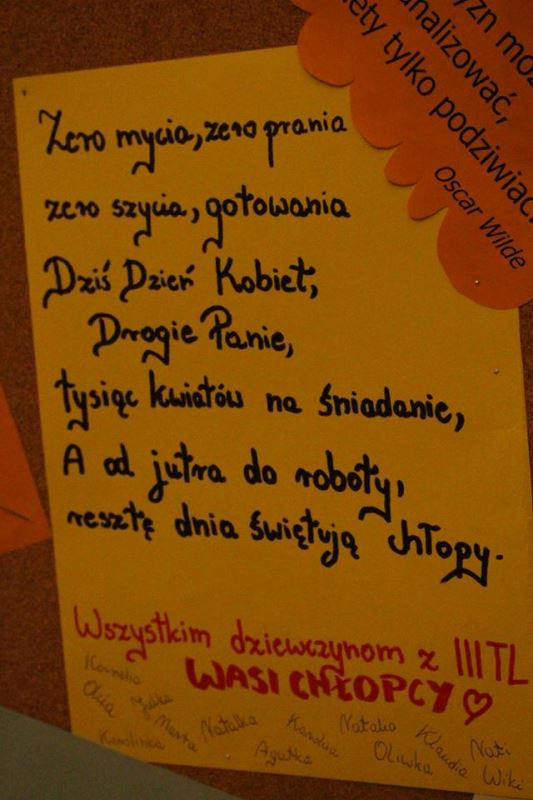 analizować,
tylko podziwiać.
Oscar Wilde
Zero mycia, zero prania
zero szycia, gotowania
Dziś Dzień Kobiet,
Drogie Panie,
tysiąc kwiatów na śniadanie,
A od jutra do roboty,
resztę dnia świętują chłopy.
Wszystkim dziewczynom z III TL
WASI CHŁOPCY ♡
Kornelia
Ola Julka Natalka Karolina Natalia Klaudia Nati
Karolinka Marta Agatka Oliwka Wiki